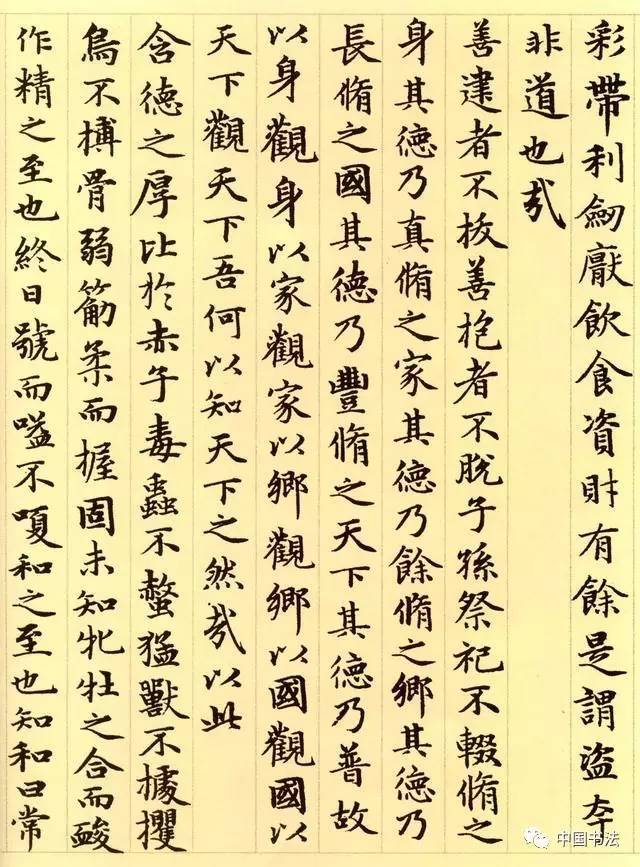 彩帶利劒厭飲食資財有餘是謂盜夸
非道也哉
善建者不拔善抱者不脫子孫祭祀不輟脩之
身其德乃真脩之家其德乃餘脩之鄉其德乃
長脩之國其德乃豐脩之天下其德乃普故
以身觀身以家觀家以鄉觀鄉以國觀國以
天下觀天下吾何以知天下之然哉以此
含德之厚比於赤子毒蟲不螫猛獸不據攫
鳥不搏骨弱筋柔而握固未知牝牡之合而䘒
作精之至也終日號而嗌不嗄和之至也知和曰常
中国书法